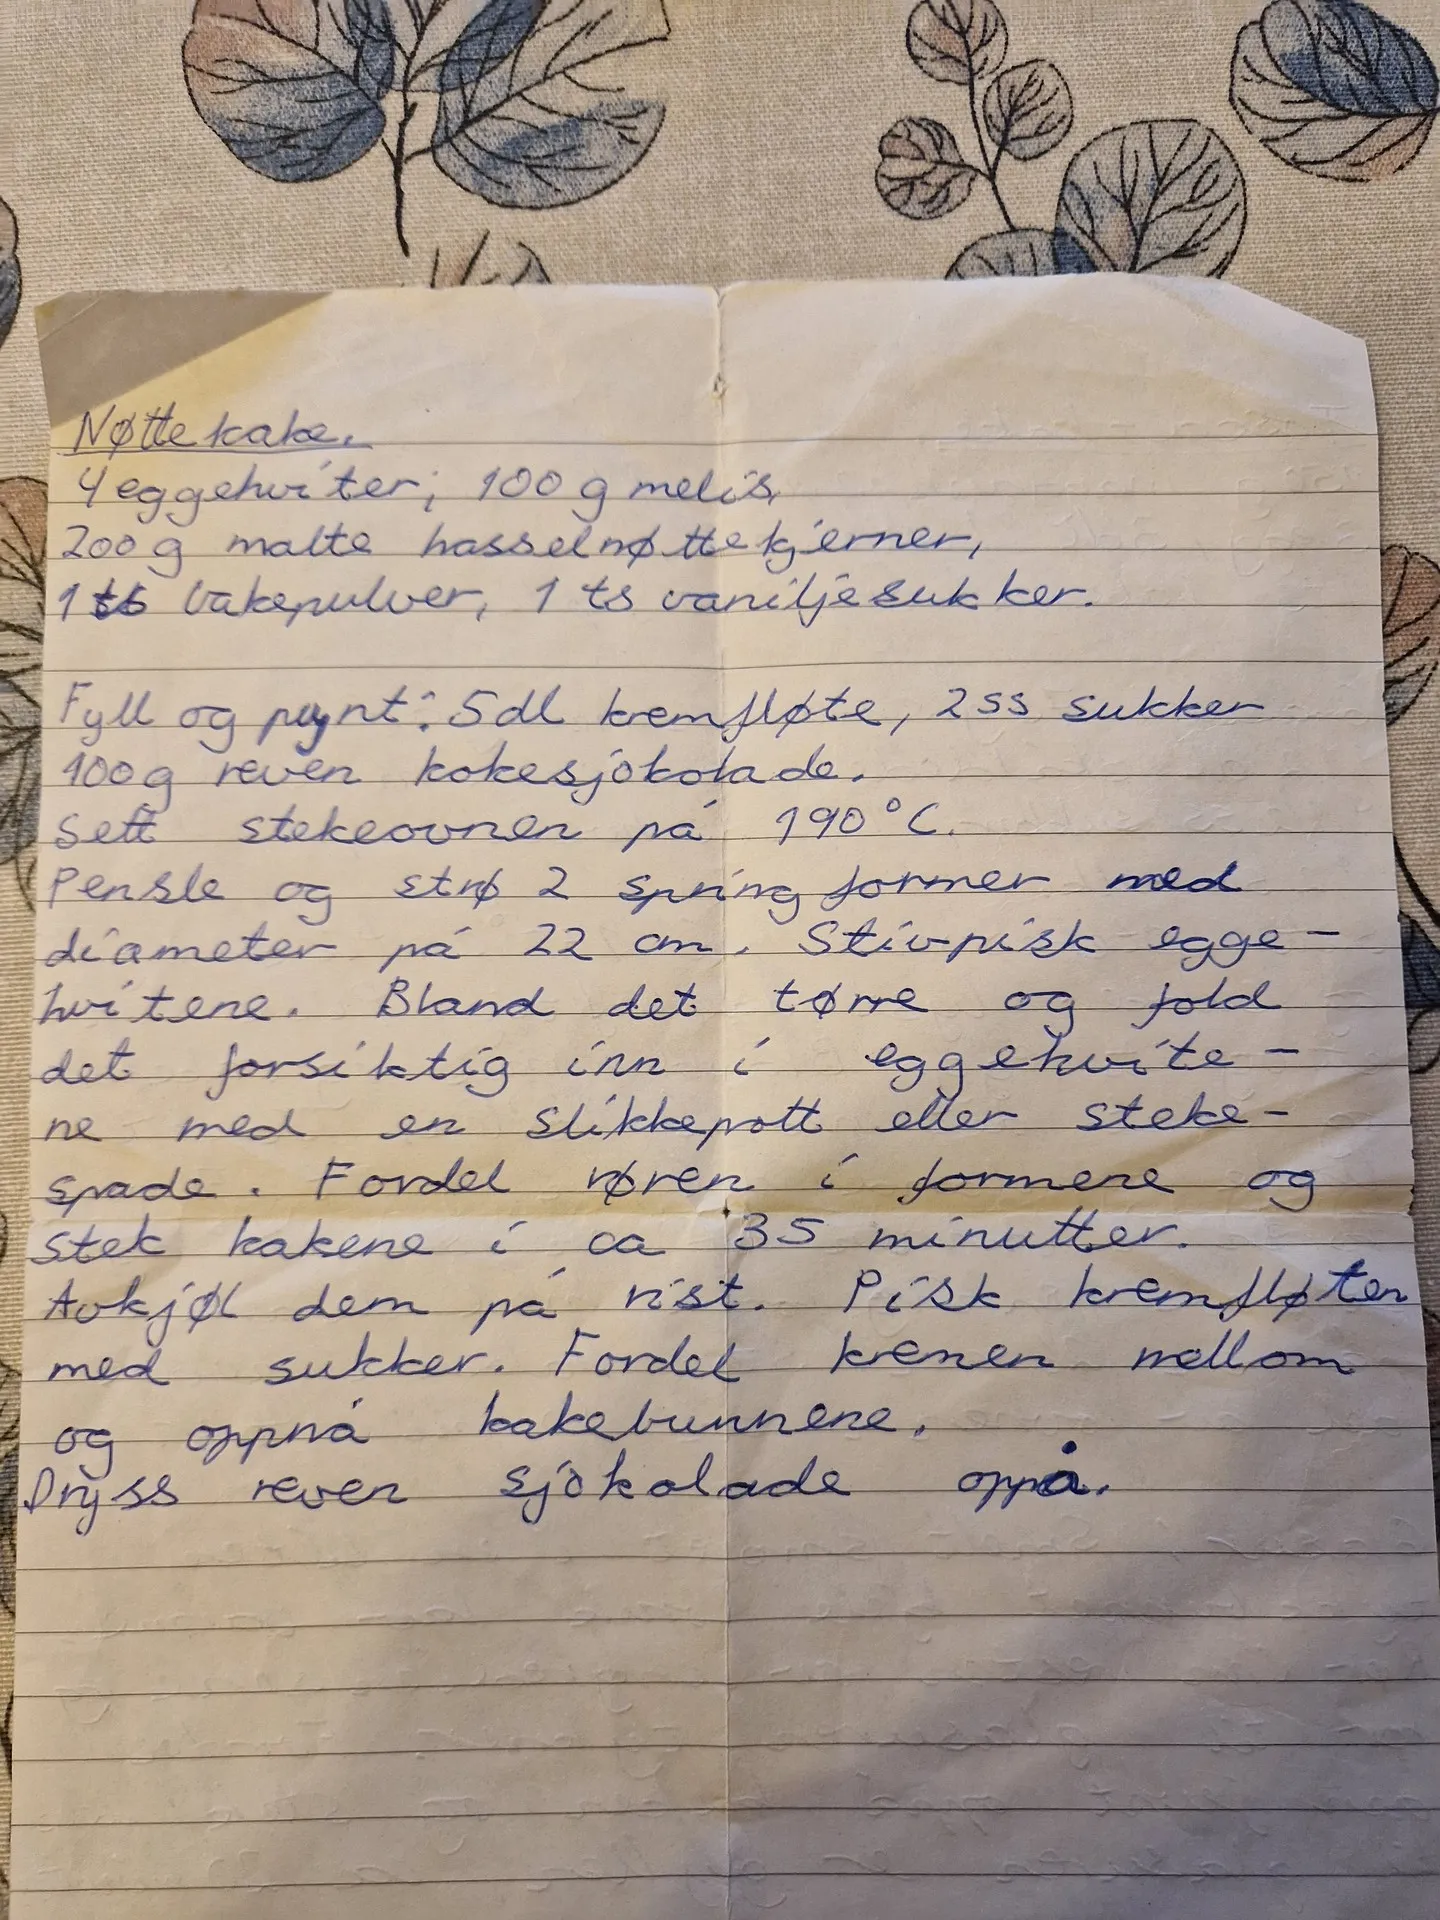 Nøttekake.
4 eggehviter, 100 g melis,
200 g malte hasselnøttekjerner,
1 ts bakepulver, 1 ts vaniljesukker.
Fyll og pynt: 5 dl kremfløte, 2 ss sukker
100 g reven kokesjokolade.
Sett stekeovnen på 190°C.
Pensle og strø 2 springformer med
diameter på 22 cm. Stivpisk egge-
hvitene. Bland det tørre og fold
det forsiktig inn i eggehvite-
ne med en slikkepott eller steke-
spade. Fordel røren i formene og
stek kakene i ca 35 minutter.
Avkjøl dem på rist. Pisk kremfløten
med sukker. Fordel kremen mellom
og oppnå kakebunnene.
Dryss reven sjokolade oppå.